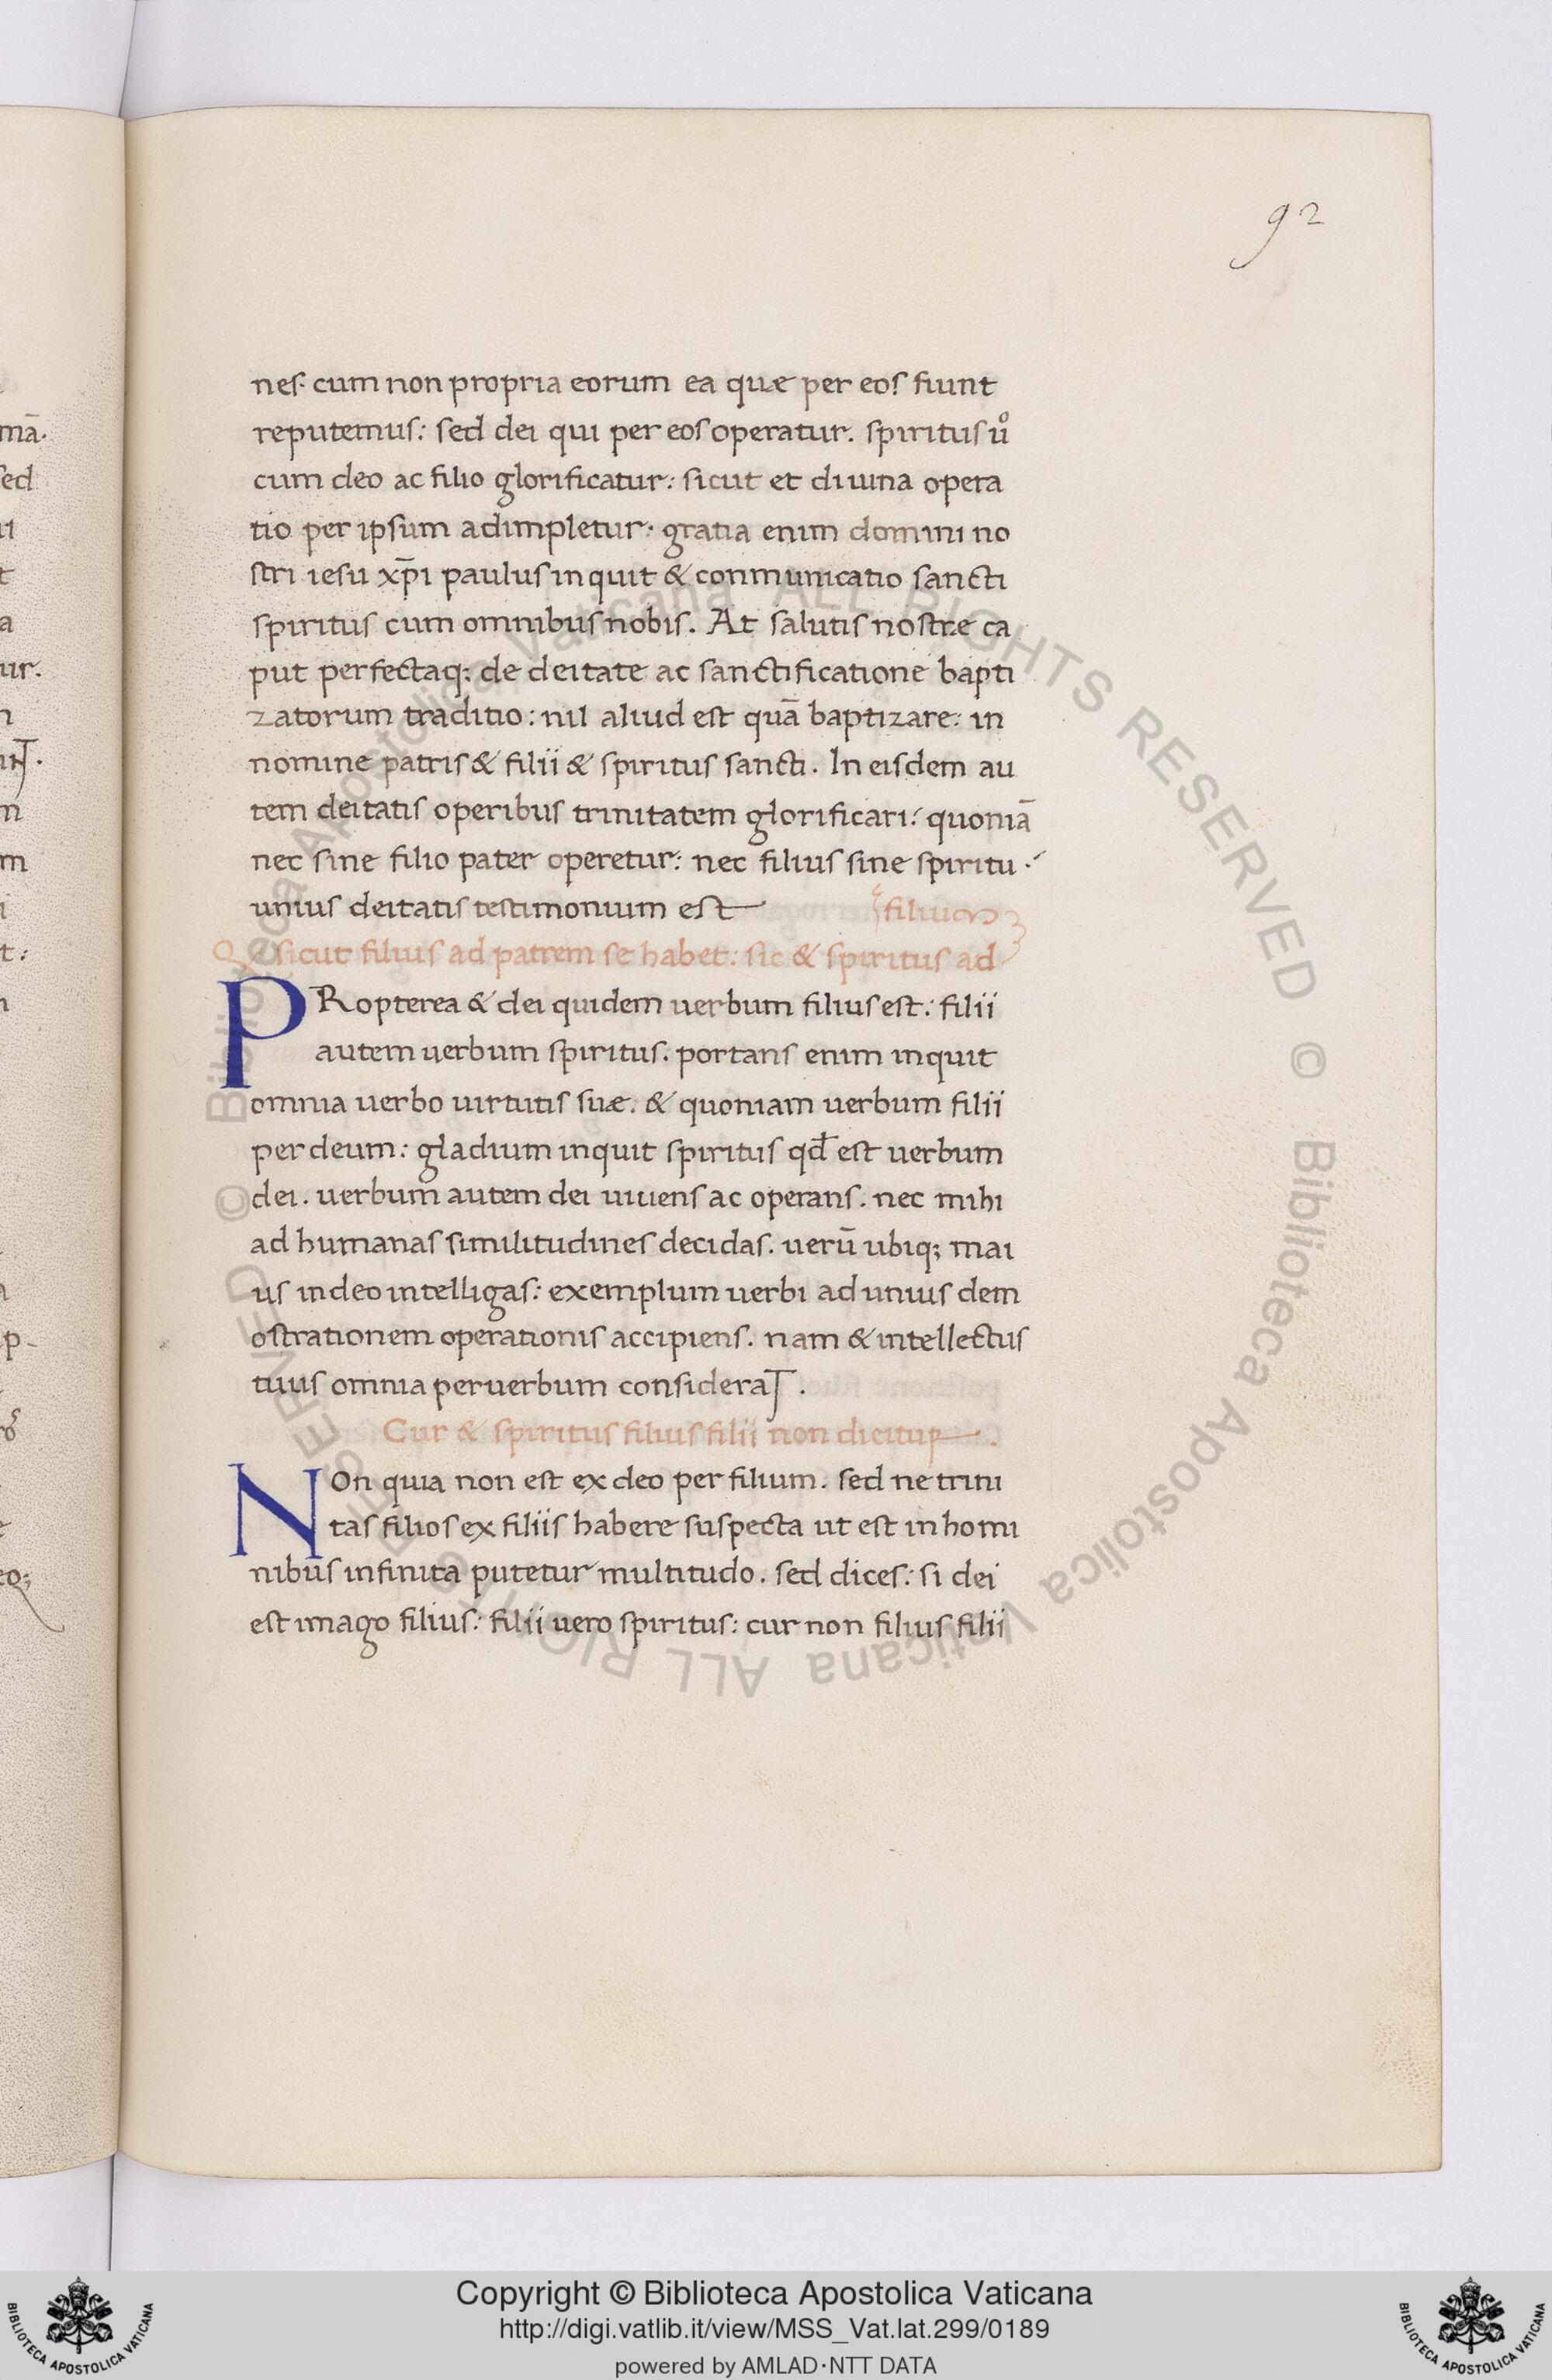 92
nes. cum non propria eorum ea quæ per eos fiunt
reputemus: sed dei qui per eos operatur. spiritus uͦ
cum deo ac filio glorificatur: sicut et diuina opera
tio per ipsum adimpletur. gratia enim domini no
stri iesu xp̄i paulus inquit & conmunicatio sancti
spiritus cum omnibus nobis. At salutis nostre ca
put perfectaq; de deitate ac sanctificatione bapti
zatorum traditio: nil aliud est quā baptizare: in
nomine patris & filii & spiritus sancti. In eisdem au
tem deitatis operibus trinitatem glorificari: quoniā
nec sine filio pater operetur: nec filius sine spiritu.
unius deitatis testimonium est
filium
sicut filius ad patrem se habet: sic & spiritus ad
PRopterea & dei quidem uerbum filius est: filii
autem uerbum spiritus. portans enim inquit
omnia uerbo uirtutis suæ. & quoniam uerbum filii
per deum: gladium inquit spiritus qđ est uerbum
dei. uerbum autem dei uiuens ac operans. nec mihi
ad humanas similitudines decidas. uerū ubiq; mai
us in deo intelligas: exemplum uerbi ad unius dem
ostrationem operationis accipiens. nam & intellectus
tuus omnia per uerbum considerat.
Cur & spiritus filius filii non dicitur.
NOn quia non est ex deo per filium. sed ne trini
tas filios ex filiis habere suspecta ut est in homi
nibus infinita putetur multitudo. sed dices: si dei
est imago filius: filii uero spiritus: cur non filius filii
© Biblioteca Apostolica Vaticana ALL RIGHTS RESERVED © Biblioteca Apostolica Vaticana ALL RIGHTS RESERVED
Copyright © Biblioteca Apostolica Vaticana
http://digi.vatlib.it/view/MSS_Vat.lat.299/0189
powered by AMLAD·NTT DATA
BIBLIOTECA APOSTOLICA VATICANA
BIBLIOTECA APOSTOLICA VATICANA